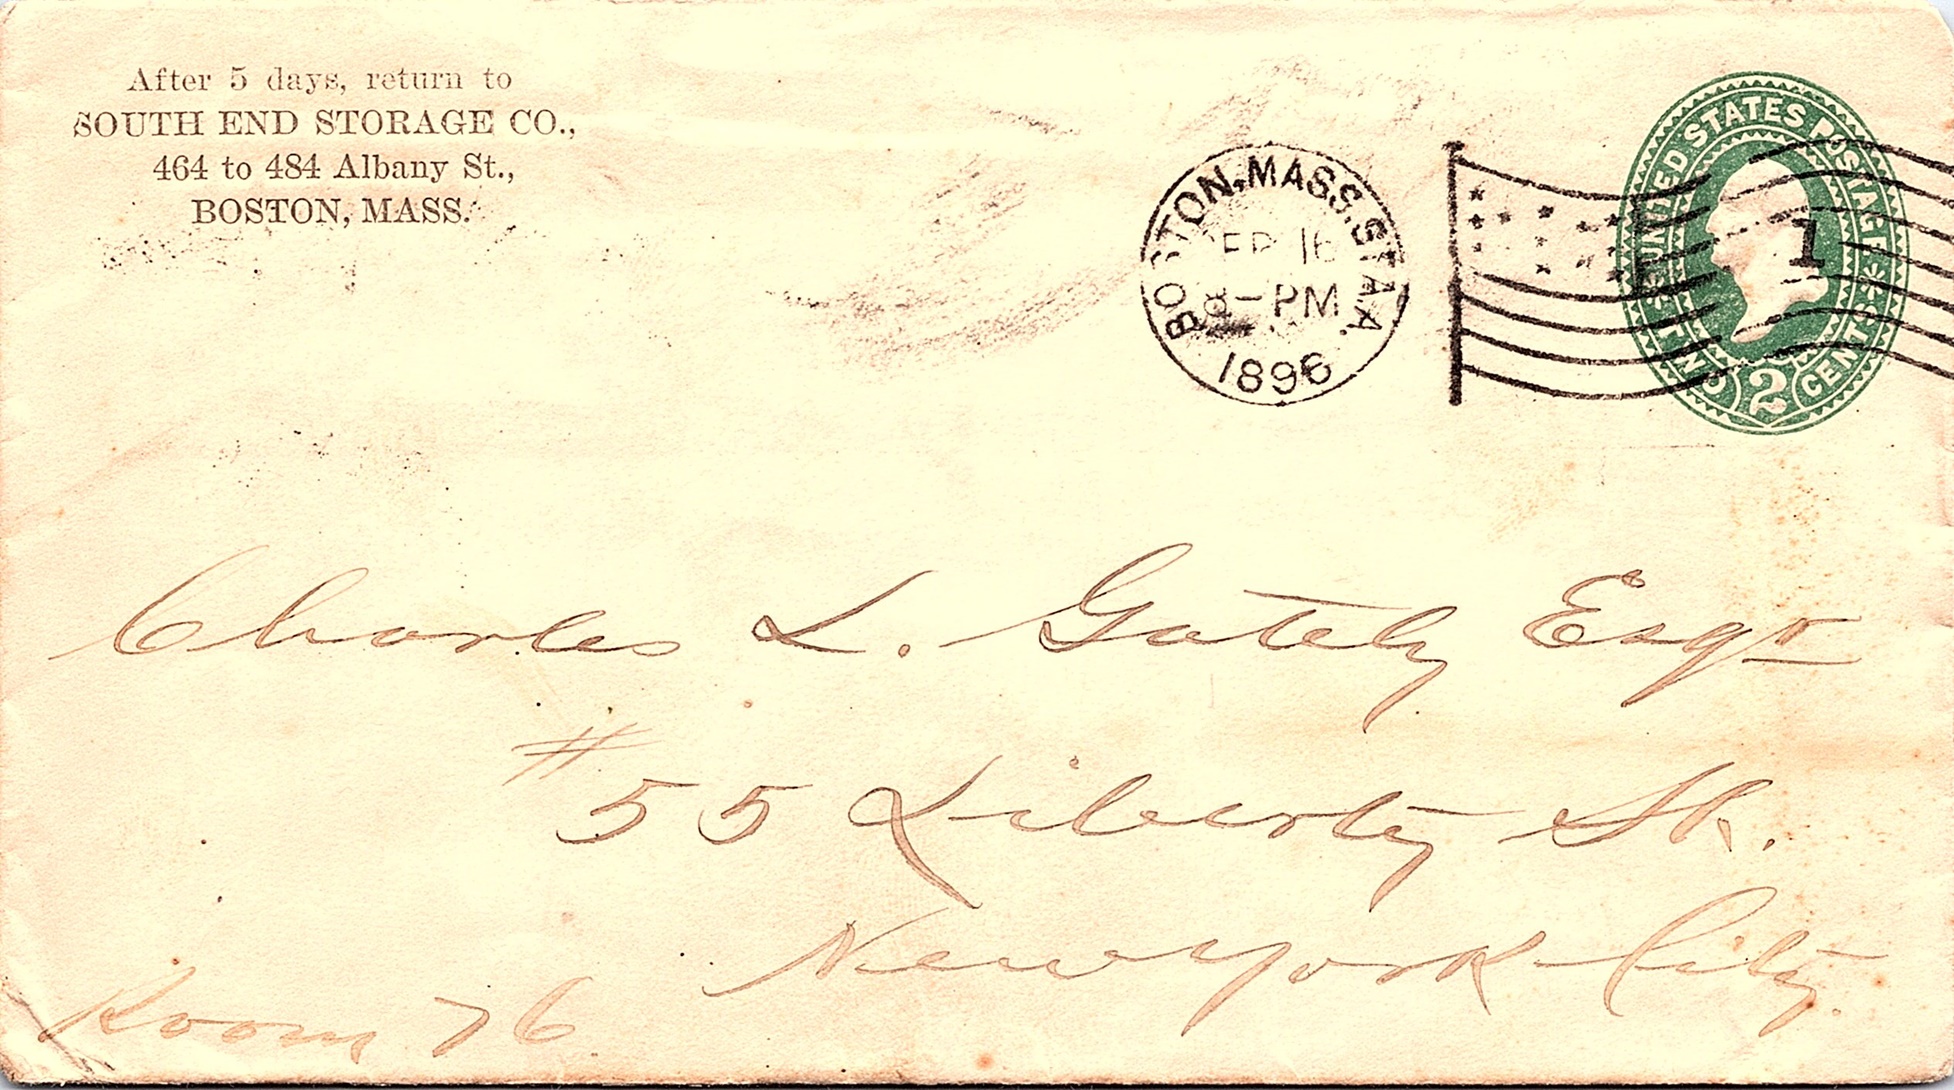 After 5 days, return to
SOUTH END STORAGE CO.,
464 to 484 Albany St.,
BOSTON, MASS.
BOSTON, MASS. STA. A.
16
8-PM
1896
UNITED STATES POSTAGE
1
TWO 2 CENTS
Charles L. Gately Esqr
#55 Liberty St.
New York City.
Room 76